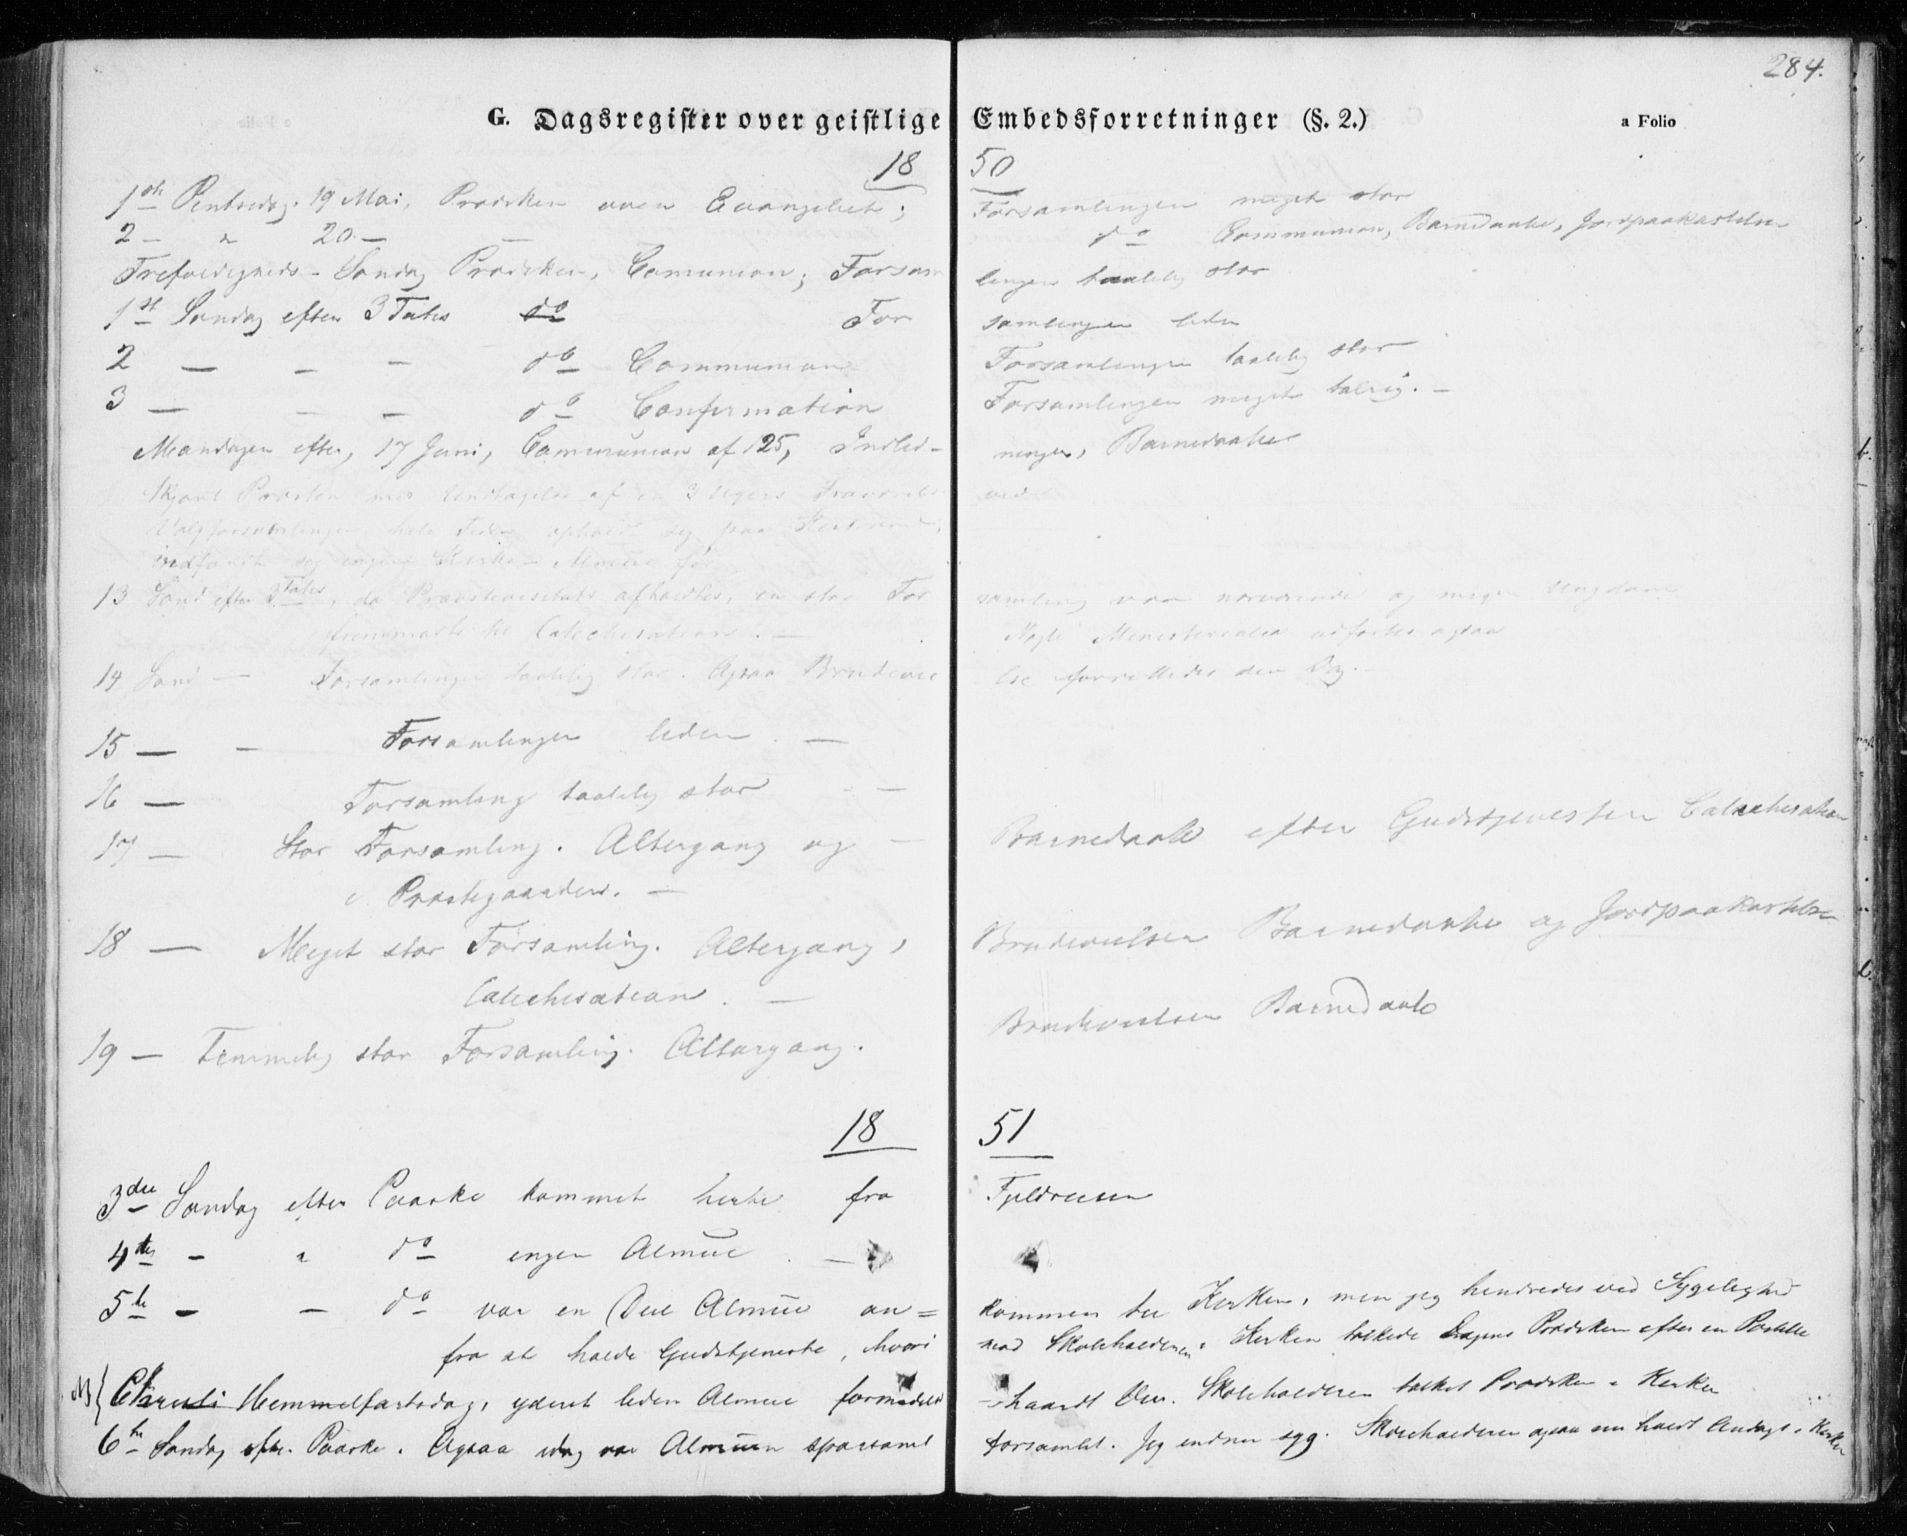 284.
G. Dagsregister over geistlige Embedsforretninger (§. 2.) a Folio
18 50
1ste Pintsedag. 19 Mai, Prædiken over Evangeliet; Forsamlingen meget stor
2 - " 20 - — do Communion, Barnedaabe, Jordpaakastelse
Trefoldigheds-Søndag Prædiken, Comunion; Forsamlingen taalelig stor
1ste Søndag efter 3 Tatis do Forsamlingen liden
2 — - - do Communion Forsamlingen taalelig stor
3 — - - do Confirmation Forsamlingen meget talrig. -
Mandagen efter, 17 Juni, Communion af 125, Indledninger, Barnedaaber
Skjønt Præsten med Undtagelse af en 3 Ugers Fraværelse ved
Valgforsamlingen hele Tiden opholdt sig paa
indfandt sig ingen Kirke-Almue før
13 Sønd efter 3 Tatis, da Provstevisitats afholdtes, en stor Forsamling var nærværende og megen Ungdom
fremmødte til Catechisation. — Nogle Ministerialia udførtes ogsaa
14 Sønd — Forsamlingen taalelig stor. Ogsaa Brudevielse forrettedes den Dag. -
15 — - Forsamlingen liden. —
16 — Forsamling taalelig stor -
17 — Stor Forsamling. Altergang og - Barnedaab efter Gudstjenesten Catechisation
i Præstegaarden. —
18 — Meget stor Forsamling. Altergang, Brudevielser Barnedaabe og Jordpaakastelse
Catechisation. —
19 — Temmelig stor Forsamling. Altergang. Brudevielser Barnedaab
18 51
3die Søndag efter Paaske kommet hertil fra Fjeldreisen
4de - " do ingen Almue. —
5te - - do var en Deel Almue an= kommen til Kirken, men jeg hindredes ved Sygelighed
fra at holde Gudstjeneste, hvori mod Skoleholderen i Kirken tolkede Dagens Prædiken efter en Postille
NB { Christi Himmelfartsdag, yderst liden Almue formedelst haardt Veir. Skoleholderen tolket Prædiken i Kirken
6te Søndag eft. Paaske. Ogsaa idag var Almuen sparsomt forsamlet. Jeg endnu syg. Skoleholderen ogsaa nu holdt Andagt i Kirken